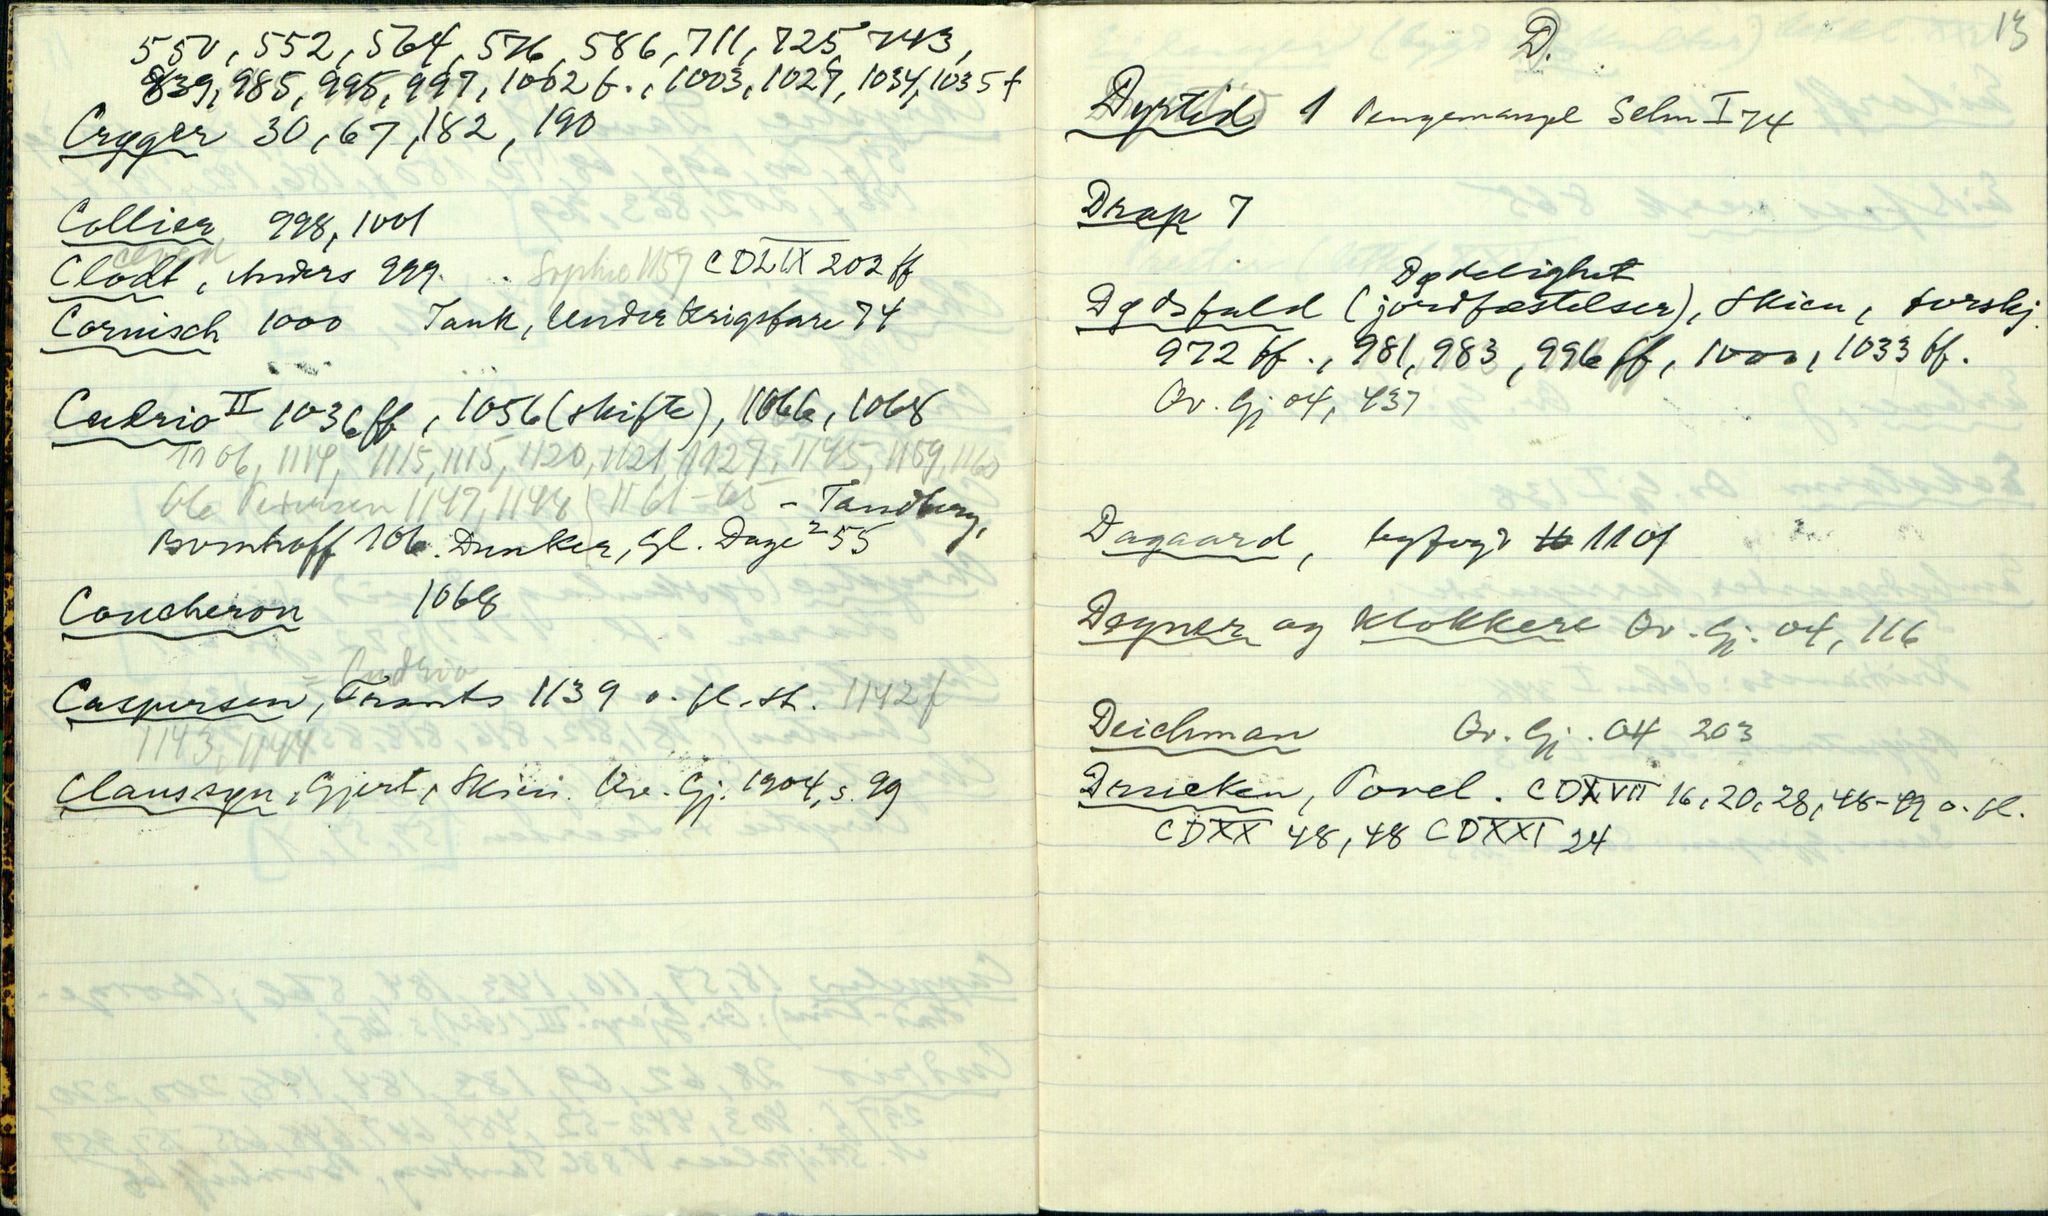 550, 552, 564, 576, 586, 711, 725, 743,
839, 985, 995, 997, 1002 f., 1003, 1027, 1034, 1035 f
Cryger 30, 67, 182, 190
Collier 998, 1001
Clodt, Anders 999. Sophie 1159 CDLIX 202 ff
Cornisch 1000 Tank, Under Krigsfare 74
Cudrio II 1036 ff, 1056 (skifte), 1066, 1068
1106, 1114, 1115, 1115, 1120, 1121, 1127, 1145, 1159, 1160
Ole Petersen 1147, 1148 1161-65 - Tandberg,
Bornhoff 106. Dunker, Gl. Dage 2 55
Coucheron 1068
= Cudrio
Caspersen, Frants 1139 o. fl. st. 1142 f
1143, 1144
Claussøn, Gjert, Skien. Kr. Gj. 1904, s. 99
13
D.
Dyrtid 1 Pengemangel Selm I 74
Drap 7
Dødelighet
Dødsfald (jordfæstelser), Skien, forskj.
972 ff., 981, 983, 996 ff, 1000, 1033 ff.
Br. Gj 04, 437
Dagaard, byfogd 1101
Degner og Klokkere Br. Gj. 04, 116
Deichman Br. Gj. 04 203
Drucken, Povel. CDXVII 16, 20, 28, 48-49 o. fl.
CDXX 48, 48 CDXXI 24